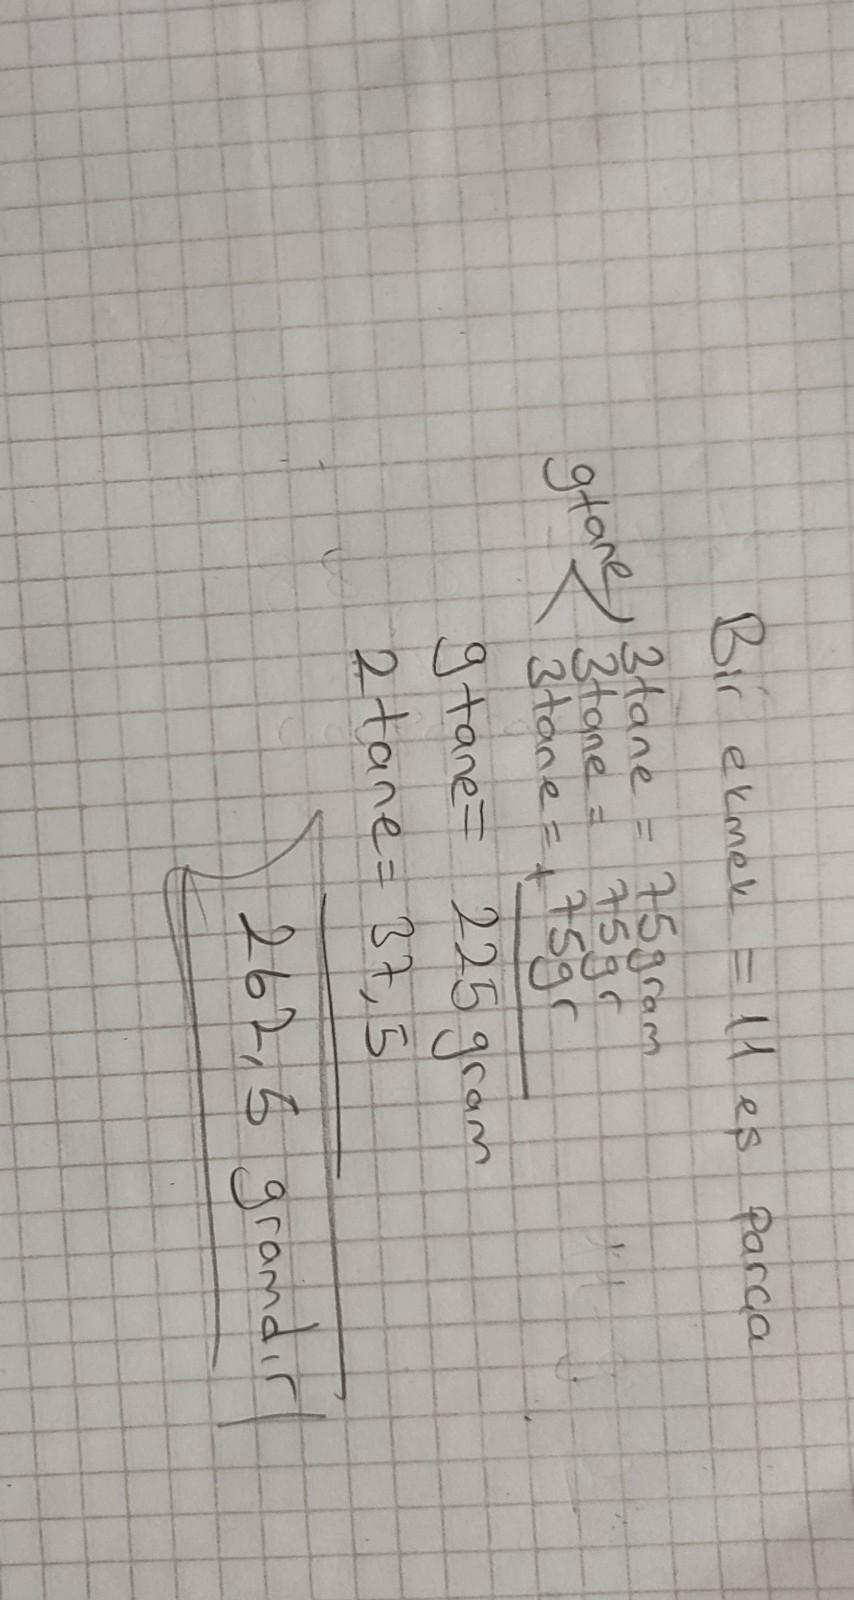 Bir ekmek = 11 eş parça
3tane = 75gram
9tane < 3tane = 75gr
3tane = + 75gr
9tane = 225 gram
2 tane = 37,5
262,5 gramdır